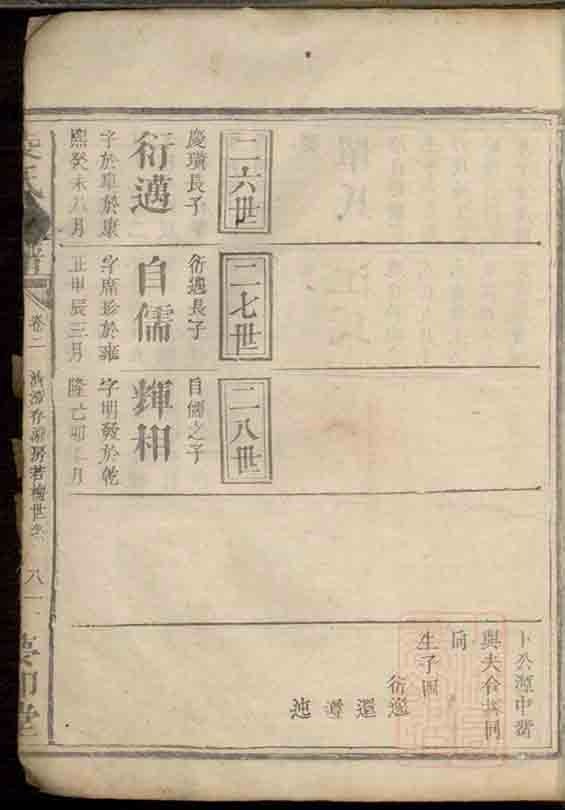 卜公源中嵛
與夫合塟同
向
生子四
衍邁
還
遵
迆
二六世
慶璜長子
衍邁
字於皐於康
熙癸未八月
二七世
衍邁長子
自儒
字席珍於雍
正甲辰三月
二八世
自儒之子
輝相
字明發於乾
隆己卯 月
氏 譜
卷二
八一